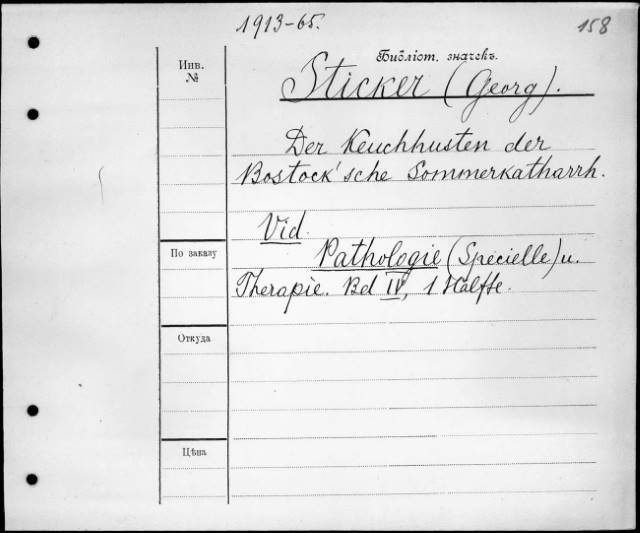 1913-65.
158
Инв.
№
Библіот. значекъ.
Sticker (Georg).
Der Keuchhusten der
Bostock'sche Sommerkatharrh.
Vid.
По заказу
Pathologie (Specielle) u.
Therapie. Bd IV, 1 Hälfte.
Откуда
Цѣна